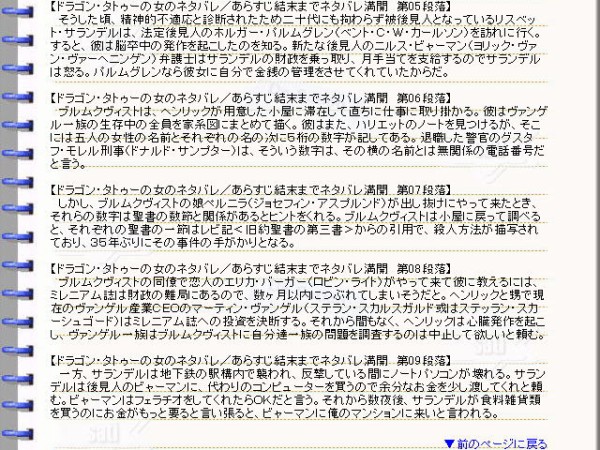 【ドラゴン・タトゥーの女のネタバレ／あらすじ結末までネタバレ満開　第05段落】
　そうした頃、精神的不適応と診断されたため二十代にも拘わらず被後見人となっているリスベッ
ト・サランデルは、法定後見人のホルガー・パルムグレン(ベント・C・W・カールソン)を訪れに行く。
すると、彼は脳卒中の発作を起こしたのを知る。新たな後見人のニルス・ビャーマン(ヨリック・ヴァ
ン・ヴァーヘニンゲン)弁護士はサランデルの財政を乗っ取り、月手当てを支給するのでサランデル
は怒る。パルムグレンなら彼女に自分で金銭の管理をさせてくれていたからだ。
【ドラゴン・タトゥーの女のネタバレ／あらすじ結末までネタバレ満開　第06段落】
　ブルムクヴィストは、ヘンリックが用意した小屋に滞在して直ちに仕事に取り掛かる。彼はヴァンゲ
ル一族の生存中の全員を家系図にまとめて描く。彼はまた、ハリエットのノートを見つけるが、そこ
には五人の女性の名前とそれぞれの名の次に５桁の数字が記してある。退職した警官のグスタ
フ・モレル刑事(ドナルド・サンプター)は、そういう数字は、その横の名前とは無関係の電話番号だ
と言う。
【ドラゴン・タトゥーの女のネタバレ／あらすじ結末までネタバレ満開　第07段落】
　しかし、ブルムクヴィストの娘ペルニラ(ジョセフィン・アスプルンド)が出し抜けにやって来たとき、
それらの数字は聖書の数節と関係があるとヒントをくれる。ブルムクヴィストは小屋に戻って調べる
と、それぞれの聖書の一節はレビ記＜旧約聖書の第三書＞からの引用で、殺人方法が描写され
ており、３５年ぶりにその事件の手がかりとなる。
【ドラゴン・タトゥーの女のネタバレ／あらすじ結末までネタバレ満開　第08段落】
　ブルムクヴィストの同僚で恋人のエリカ・バーガー(ロビン・ライト)がやって来て彼に教えるには、
ミレニアム誌は財政の難局にあるので、数ヶ月以内につぶれてしまいそうだと。ヘンリックと甥で現
在のヴァンゲル産業CEOのマーティン・ヴァンゲル(ステラン・スカルスガルド或はステッラン・スカ
ーシュゴード)はミレニアム誌への投資を決断する。それから間もなく、ヘンリックは心臓発作を起こ
し、ヴァンゲル一族はブルムクヴィストに自分達一族の問題を調査するのは中止して欲しいと頼む。
【ドラゴン・タトゥーの女のネタバレ／あらすじ結末までネタバレ満開　第09段落】
　一方、サランデルは地下鉄の駅構内で襲われ、反撃している間にノートパソコンが壊れる。サラン
デルは後見人のビャーマンに、代わりのコンピューターを買うので余分なお金を少し渡してくれと頼
む。ビャーマンはフェラチオをしてくれたらOKだと言う。それから数夜後、サランデルが食料雑貨類
を買うのにお金がもっと要ると言い張ると、ビャーマンに俺のマンションに来いと言われる。
▼前のページに戻る